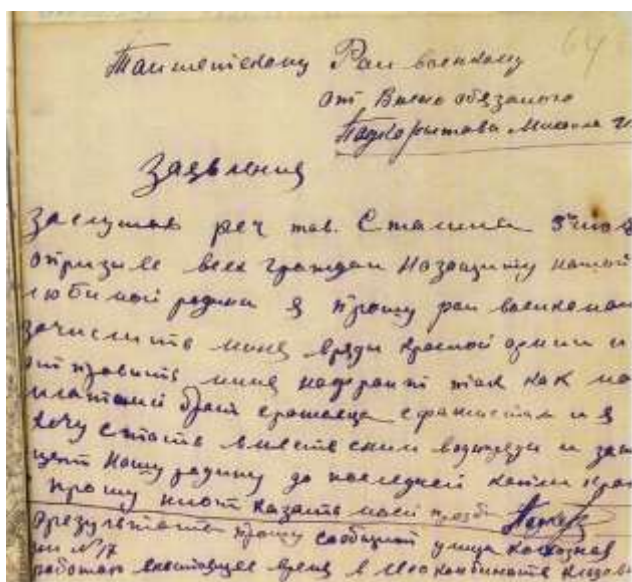 64
Таишетскому Рай военкому
от Воено обязаного
Подкорытова Михаила
Заявления
Заслушав реч тов. Сталина 3 июл
опризыве всех граждан Назащиту нашей
любимой родины я прошу рай военкома
зачислить меня вряды красной армии и
отправить меня нафронт так как мо
брат сражаеца сфашистам и я
хочу стать вместе сним водинряды и защ
нашу родину до последней капли кров
прошу неот казать моей прозбе
орезультате прошу сообщит улица Колхозная
№ 17
работаю внастоящее время в комбинате